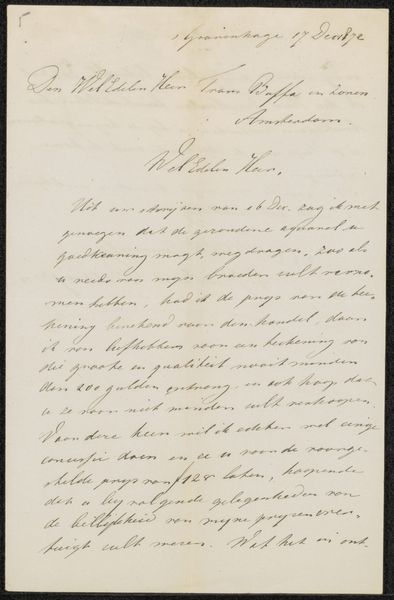 5
s Gravenhage 17 Dec 1872
Den Wel Edelen Heer Frans Buffa en Zonen
Amsterdam.
Wel Edele Heer,
Uit uw schrijven van 16 Dec. zag ik met
genoegen dat de gezondene aquarel u
goedkeuring mogt wegdragen, zoo als
u reeds van mijn broeder zult verno-
men hebben, had ik de prijs van de tee-
kening berekend voor den handel, daar
ik van liefhebbers voor een teekening van
die grootte en qualiteit nooit minder
dan 200 gulden ontvang, en ook hoop dat
u ze voor niet minder zult verkoopen.
Voor dere keer wil ik echter wel eenige
concessie doen en ze u voor de voorge-
stelde prijs van f 128 laten, hoopende
dat u bij volgende gelegenheden van
de billijkheid van mijne prijzen over-
tuigt zult wezen. Wat het ont-